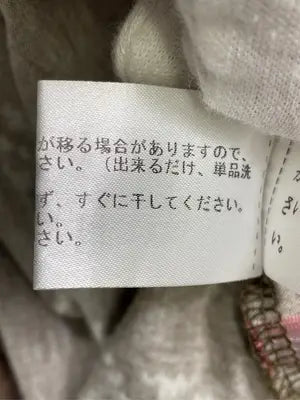 が移る場合がありますので、
さい。（出来るだけ、単品洗
ず、すぐに干してください。
い。
さい。